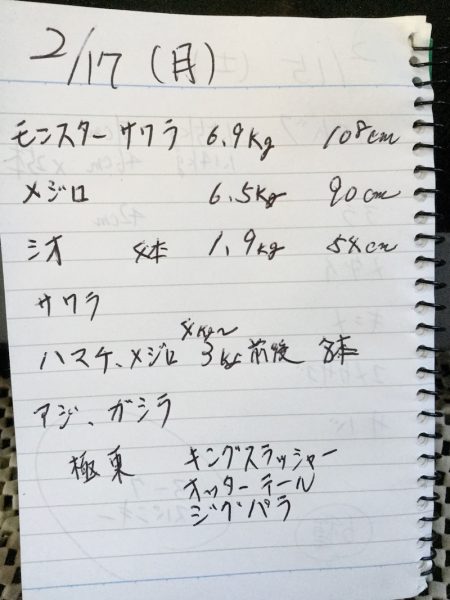 2/17 (月)
モンスターサワラ 6.9kg 108cm
メジロ 6.5kg 90cm
シオ 4本 1.9kg 54cm
サワラ
ハマチ、メジロ 3kg前後 8本
アジ、ガシラ
極東 キングスラッシャー
オッターテール
ジグパラ